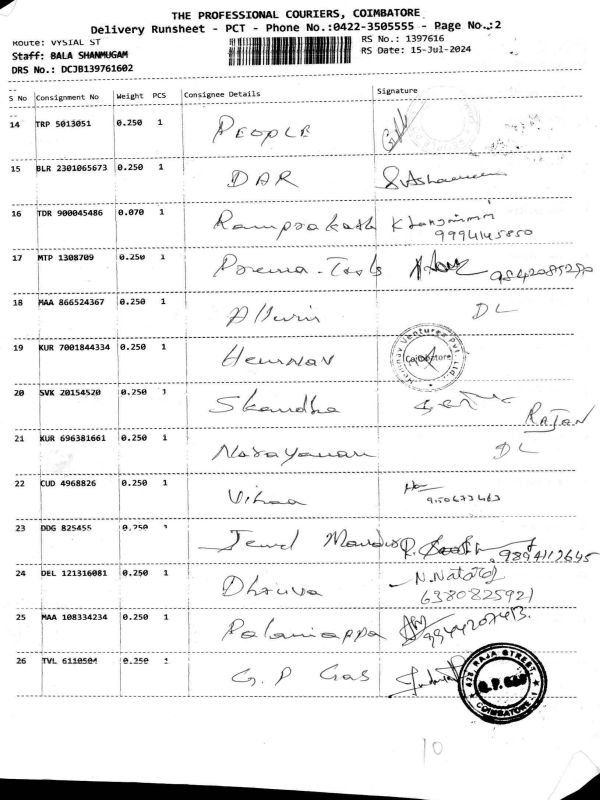 THE PROFESSIONAL COURIERS, COIMBATORE
Delivery Runsheet - PCT - Phone No.:0422-3505555 - Page No.:2
Route: VYSIAL ST RS No.: 1397616
Staff: BALA SHANMUGAM RS Date: 15-Jul-2024
DRS No.: DCJB139761602
S No Consignment No Weight PCS Consignee Details Signature
14 TRP 5013051 0.250 1 PEOPLE
15 BLR 2301065673 0.250 1 DAR
16 TDR 900045486 0.070 1 Ramprakash
9994145850
17 MTP 1308709 0.250 1 Prema-Tools 9842085290
18 MAA 866524367 0.250 1 DL
19 KUR 7001844334 0.250 1 Hennav Hennav Ventures Pvt. Ltd. Coimbatore
20 SVK 20154520 0.250 1 Skandha RAJAN
21 KUR 696381661 0.250 1 Narayanan DL
22 CUD 4968826 0.250 1 Vihaa
23 DDG 825455 0.250 1 Jewel 9894112645
24 DEL 121316081 0.250 1 Dhruva N.Nataraj
6380825921
25 MAA 108334234 0.250 1 Palaniappa
26 TVL 6110504 0.250 1 G.P Gas 428, RAJA STREET, G.P. GAS COIMBATORE-1
10